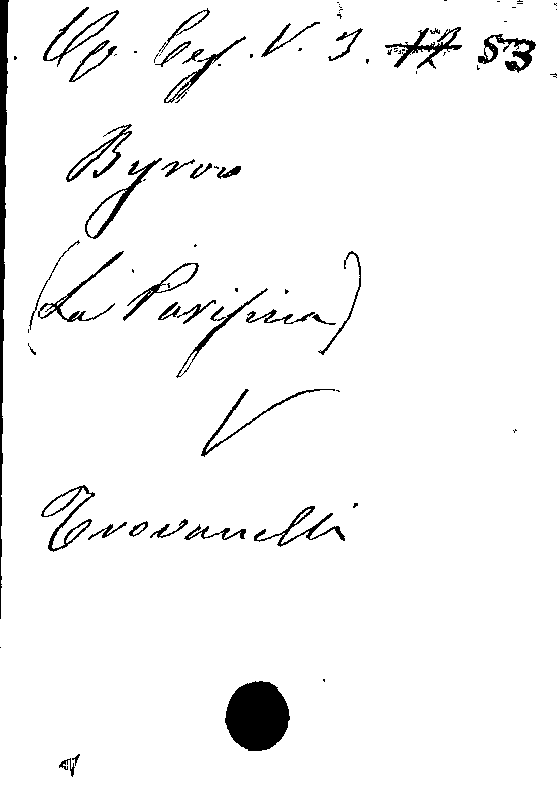 Op. Ces. V. 3. 17 53
Byron
(La Parisina)
V
Trovanelli